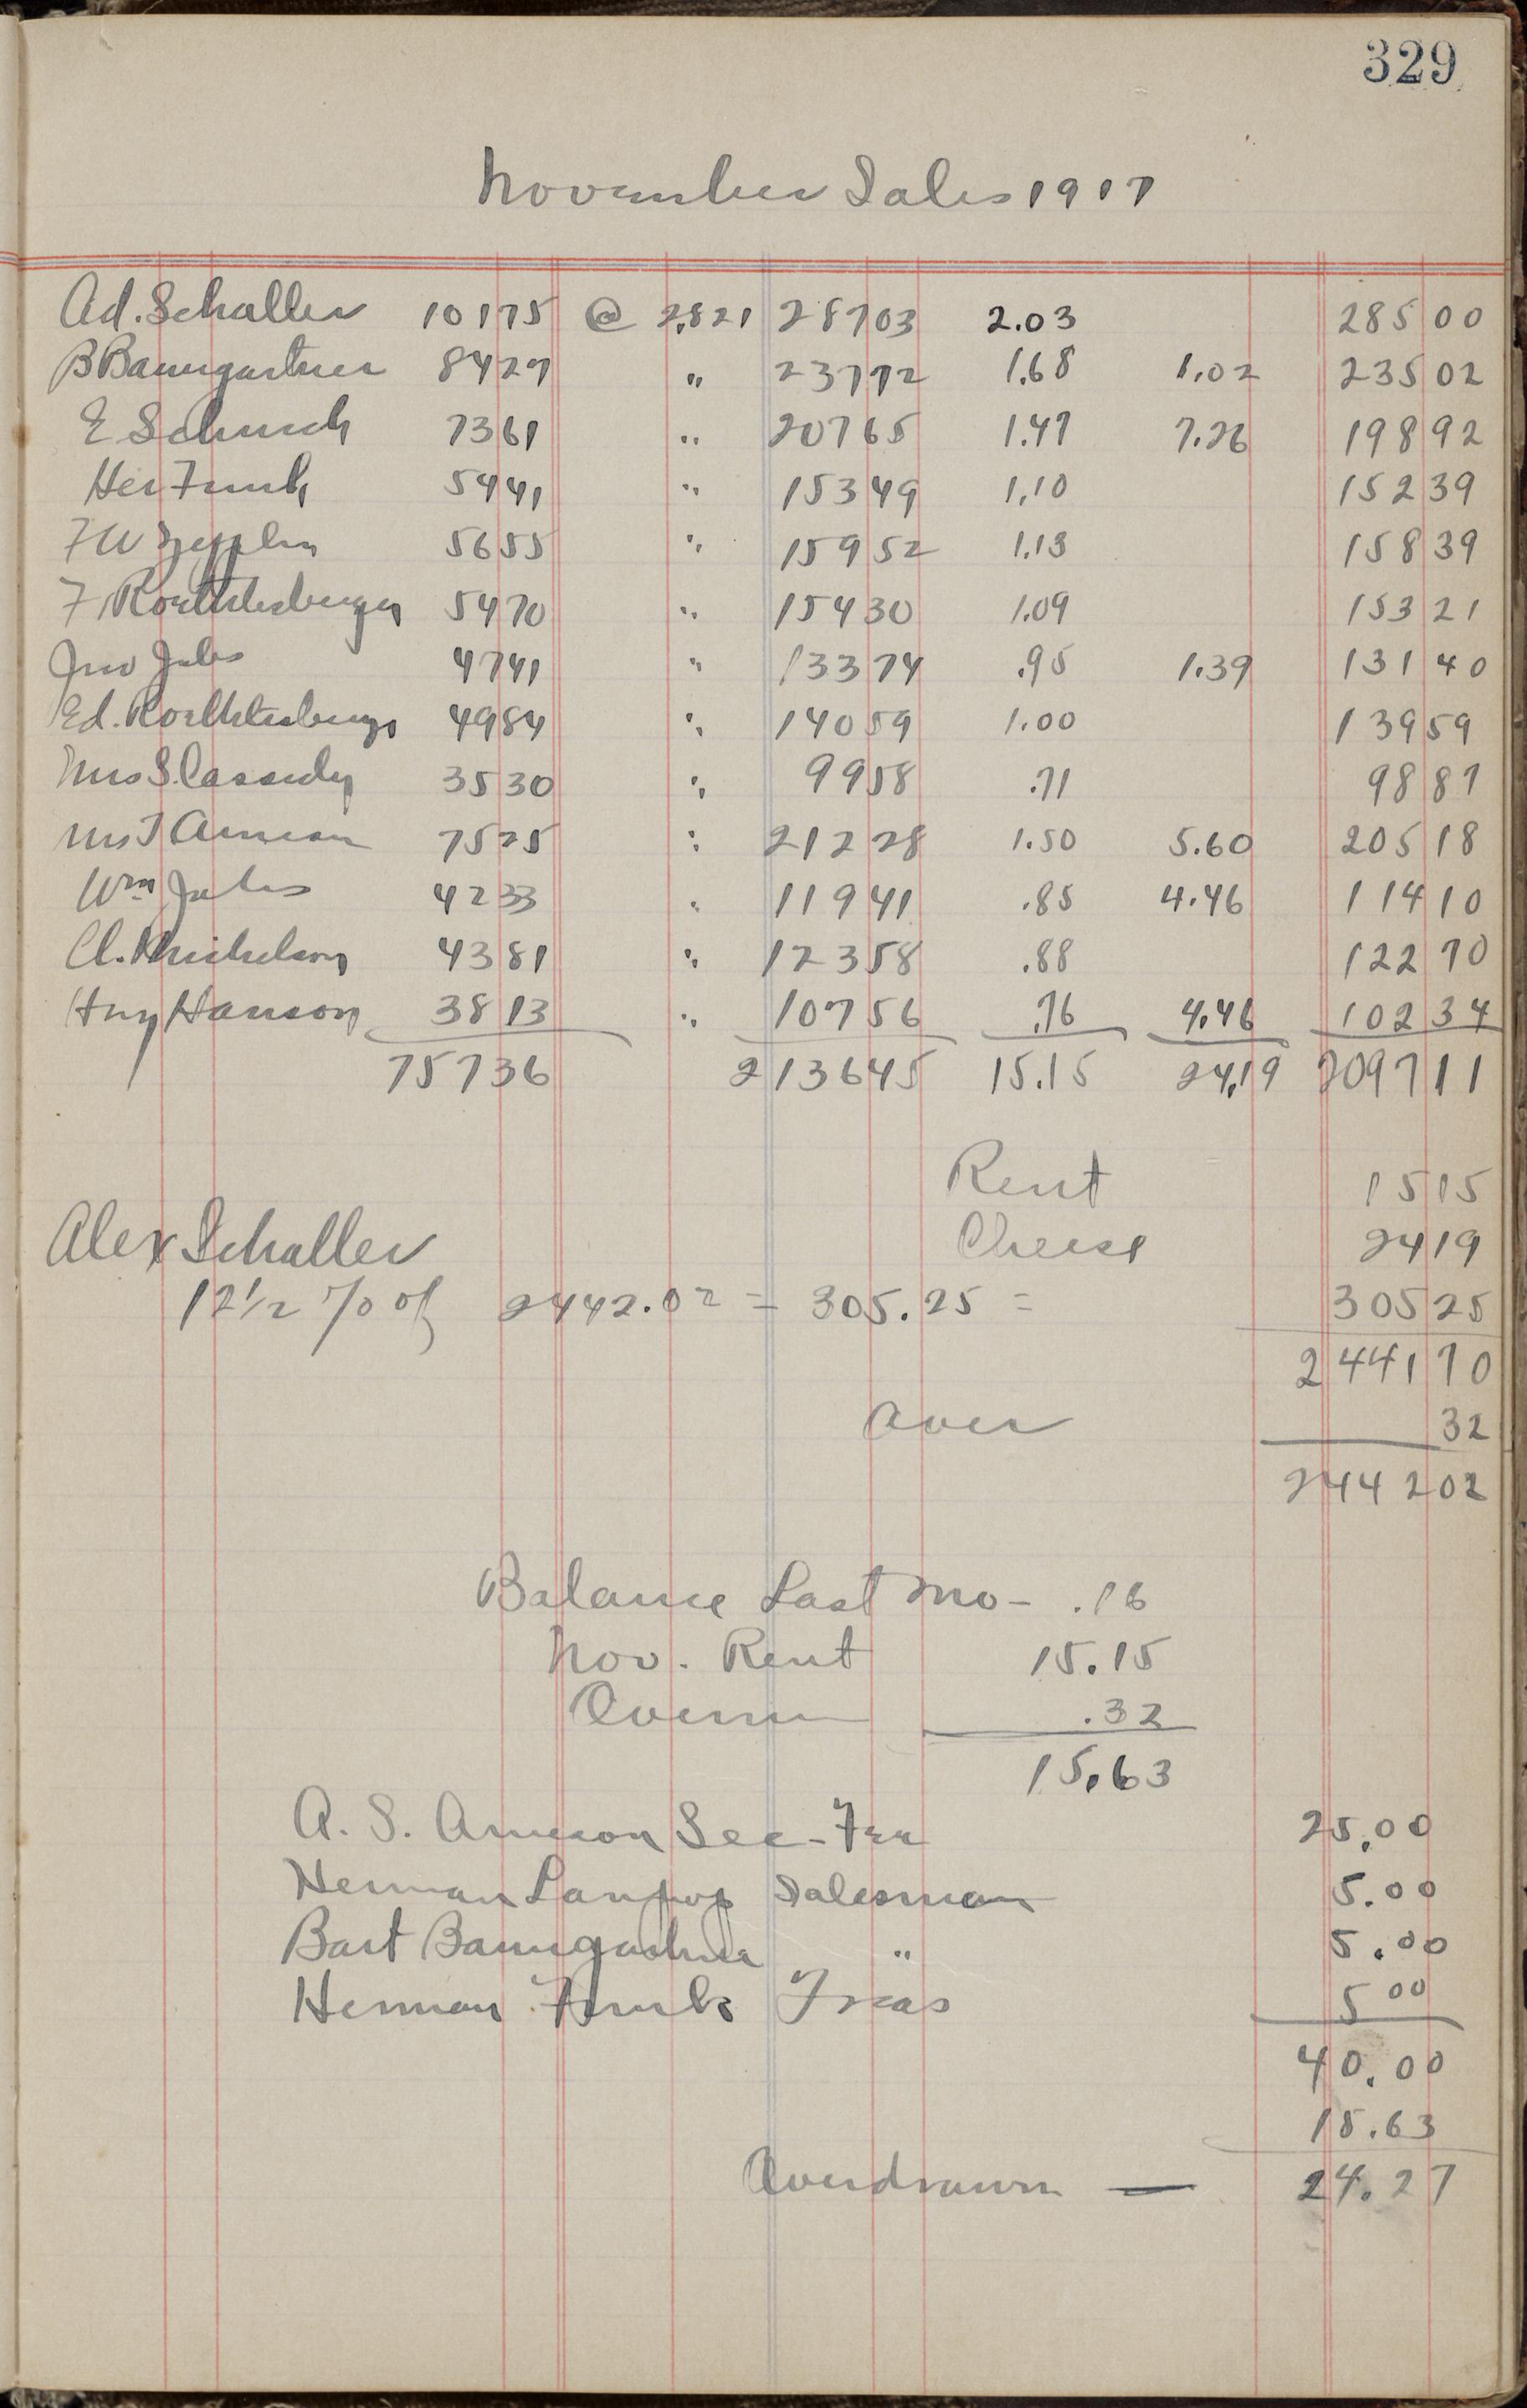 329
November Sales 1917
Ad. Schaller 10175 @ 2.821 28703 2.03 28500
B Baumgartner 8427 " 23772 1.68 1.02 23502
E Schurch 7361 " 20765 1.47 7.26 19892
Her Funk 5441 " 15349 1.10 15239
F W Zepplin 5655 " 15952 1.13 15839
F. Roethlisberger 5470 " 15430 1.09 15321
Jno Jules 4741 " 13374 .95 1.39 13140
Ed. Roethlisberger 4984 " 14059 1.00 13959
Mrs S. Cassidy 3530 " 9958 .71 9887
Mrs T Arneson 7525 " 21228 1.50 5.60 20518
Wm Jules 4233 " 11941 .85 4.46 11410
Cl. Michelson 4381 " 12358 .88 12270
Hny Hanson 3813 " 10756 .76 4.46 10234
75736 213645 15.15 24.19 209711
Rent 1515
Alex Schaller Cheese 2419
12 1/2 % of 2442.02 = 305.25 = 30525
244170
over 32
244202
Balance Last Mo - .16
Nov. Rent 15.15
Overrun .32
15.63
A. S. Arneson Sec - Fee 25.00
Herman Salesman 5.00
Bart Baumgartner " 5.00
Herman Funk Treas 5 00
40.00
15.63
Overdrawn — 24.27